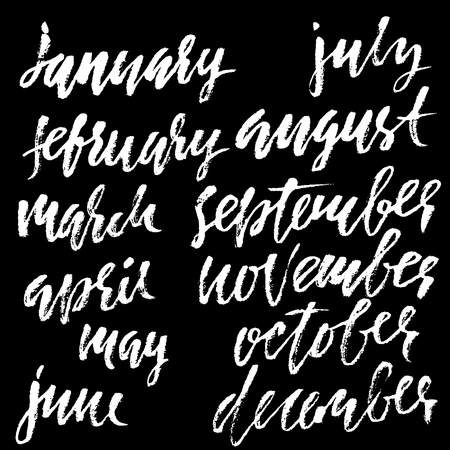 january
february
march
april
may
june
july
august
september
november
october
december